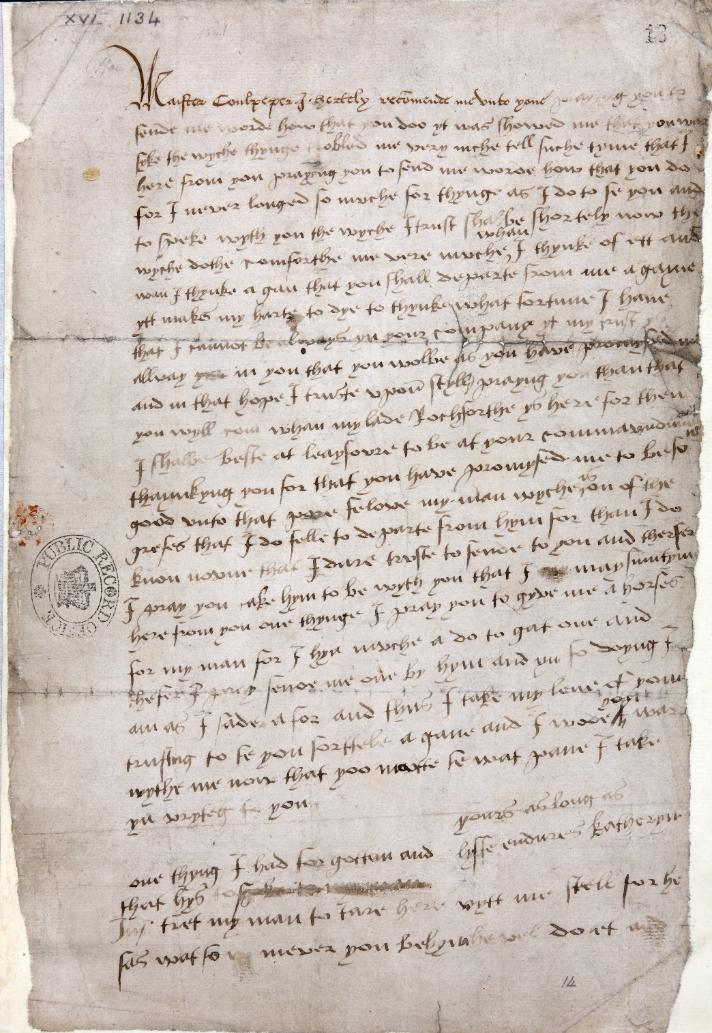 XVI 1134
13
Maister Coulpeper I hertely recomende me unto youe praying you to
sende me worde how that you doo yt was showed me that you was
syke the wyche thynge trobled me very muche tell suche tyme that I
here from you praying you to send me worde how that you do
for I never longed so muche for thynge as I do to se you and
to speke wyth you the wyche I trust shal be shortely now the
wyche dothe comforthe me very muche whan I thynke of ett and
wan I thynke a gan that you shall departe from me a gane
ytt makes my harte to dye to thynke what fortune I have
that I cannot be always yn your company yt my trust ys
allway in you that you wolbe as you have promysed me
and in that hope I truste upon styll prayng you than that
you wyll com whan my lade Rochforthe ys here for then
I shalbe beste at leaysoure to be at your commaundmant
thaynkyng you for that you have promysed me to be so
good unto that pore felowe my man wyche ys on of the
grefes that I do felle to departe from hym for than I do
know noone that I dare truste to sende to you and therfor
I pray you take hym to be wyth you that I may sumtym
here from you one thynge I pray you to gyve me a horse
for my man for I hyd muche a do to gat one and
therfer I pray sende me one by hym and yn so doyng I
am as I sade afor and thus I take my leve of you
trusting to se you shorttele a gane and I wode you was
wythe me now that yoo matte se wat pane I take
yn wryteg to you
yours as long as
lyffe endures Katheryn
one thyng I had forgotten and
that hys to
Ins tret my man to tare here wytt me still for he
sas wat so mever you bed hym he wel do et and
PUBLIC RECORD OFFICE
14